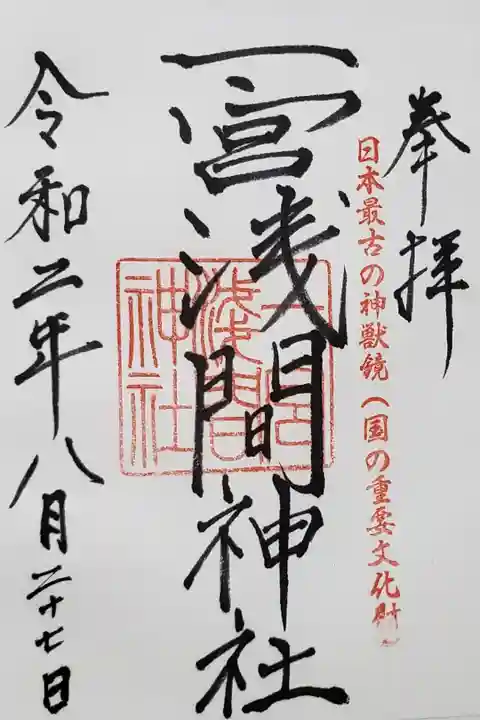 奉拝
日本最古の神獣鏡(国の重要文化財)
一宮浅間神社
一宮
浅間
神社
令和二年八月二十七日